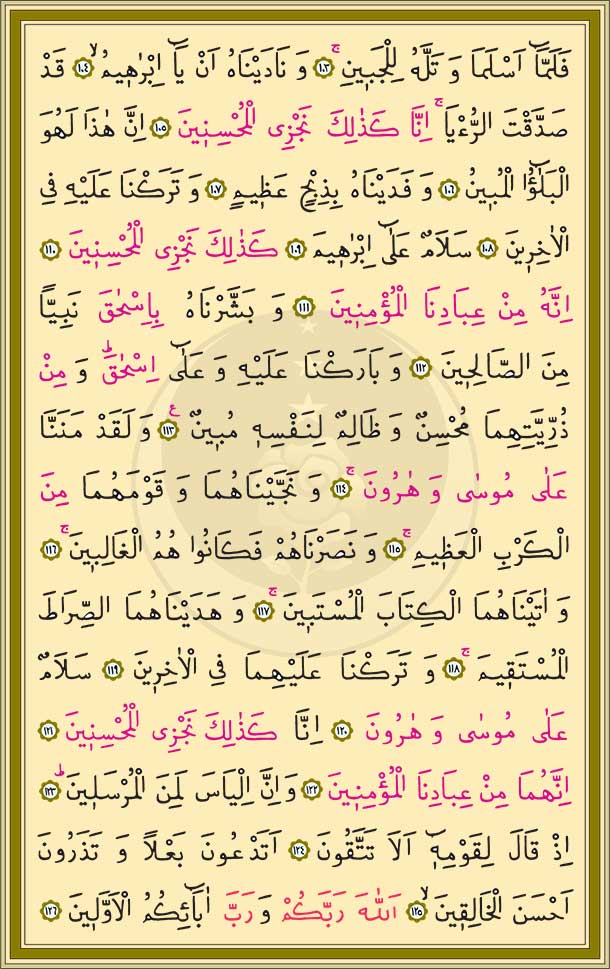 فَلَمَّٓا اَسْلَمَا وَ تَلَّهُ لِلْجَب۪ينِۚ ﴿١٠٣﴾ وَ نَادَيْنَاهُ اَنْ يَٓا اِبْرٰه۪يمُۙ ﴿١٠٤﴾ قَدْ
صَدَّقْتَ الرُّءْيَاۚ اِنَّا كَذٰلِكَ نَجْزِى الْمُحْسِن۪ينَ ﴿١٠٥﴾ اِنَّ هٰذَا لَهُوَ
الْبَلٰٓؤُا الْمُب۪ينُ ﴿١٠٦﴾ وَ فَدَيْنَاهُ بِذِبْحٍ عَظ۪يمٍ ﴿١٠٧﴾ وَ تَرَكْنَا عَلَيْهِ فِى
الْاٰخِر۪ينَ ﴿١٠٨﴾ سَلَامٌ عَلٰٓى اِبْرٰه۪يمَ ﴿١٠٩﴾ كَذٰلِكَ نَجْزِى الْمُحْسِن۪ينَ ﴿١١٠﴾
اِنَّهُ مِنْ عِبَادِنَا الْمُؤْمِن۪ينَ ﴿١١١﴾ وَ بَشَّرْنَاهُ بِاِسْحٰقَ نَبِيًّا
مِنَ الصَّالِح۪ينَ ﴿١١٢﴾ وَ بَارَكْنَا عَلَيْهِ وَ عَلٰٓى اِسْحٰقَۜ وَ مِنْ
ذُرِّيَّتِهِمَا مُحْسِنٌ وَ ظَالِمٌ لِنَفْسِه۪ مُب۪ينٌ ﴿١١٣﴾ ع وَ لَقَدْ مَنَنَّا
عَلٰى مُوسٰى وَ هٰرُونَۚ ﴿١١٤﴾ وَ نَجَّيْنَاهُمَا وَ قَوْمَهُمَا مِنَ
الْكَرْبِ الْعَظ۪يمِۚ ﴿١١٥﴾ وَ نَصَرْنَاهُمْ فَكَانُوا هُمُ الْغَالِب۪ينَۚ ﴿١١٦﴾
وَ اٰتَيْنَاهُمَا الْكِتَابَ الْمُسْتَب۪ينَۚ ﴿١١٧﴾ وَ هَدَيْنَاهُمَا الصِّرَاطَ
الْمُسْتَق۪يمَۚ ﴿١١٨﴾ وَ تَرَكْنَا عَلَيْهِمَا فِى الْاٰخِر۪ينَ ﴿١١٩﴾ سَلَامٌ
عَلٰى مُوسٰى وَ هٰرُونَ ﴿١٢٠﴾ اِنَّا كَذٰلِكَ نَجْزِى الْمُحْسِن۪ينَ ﴿١٢١﴾
اِنَّهُمَا مِنْ عِبَادِنَا الْمُؤْمِن۪ينَ ﴿١٢٢﴾ وَ اِنَّ اِلْيَاسَ لَمِنَ الْمُرْسَل۪ينَۜ ﴿١٢٣﴾
اِذْ قَالَ لِقَوْمِه۪ٓ اَلَا تَتَّقُونَ ﴿١٢٤﴾ اَتَدْعُونَ بَعْلًا وَ تَذَرُونَ
اَحْسَنَ الْخَالِق۪ينَۙ ﴿١٢٥﴾ اَللّٰهَ رَبَّكُمْ وَ رَبَّ اٰبَٓائِكُمُ الْاَوَّل۪ينَ ﴿١٢٦﴾